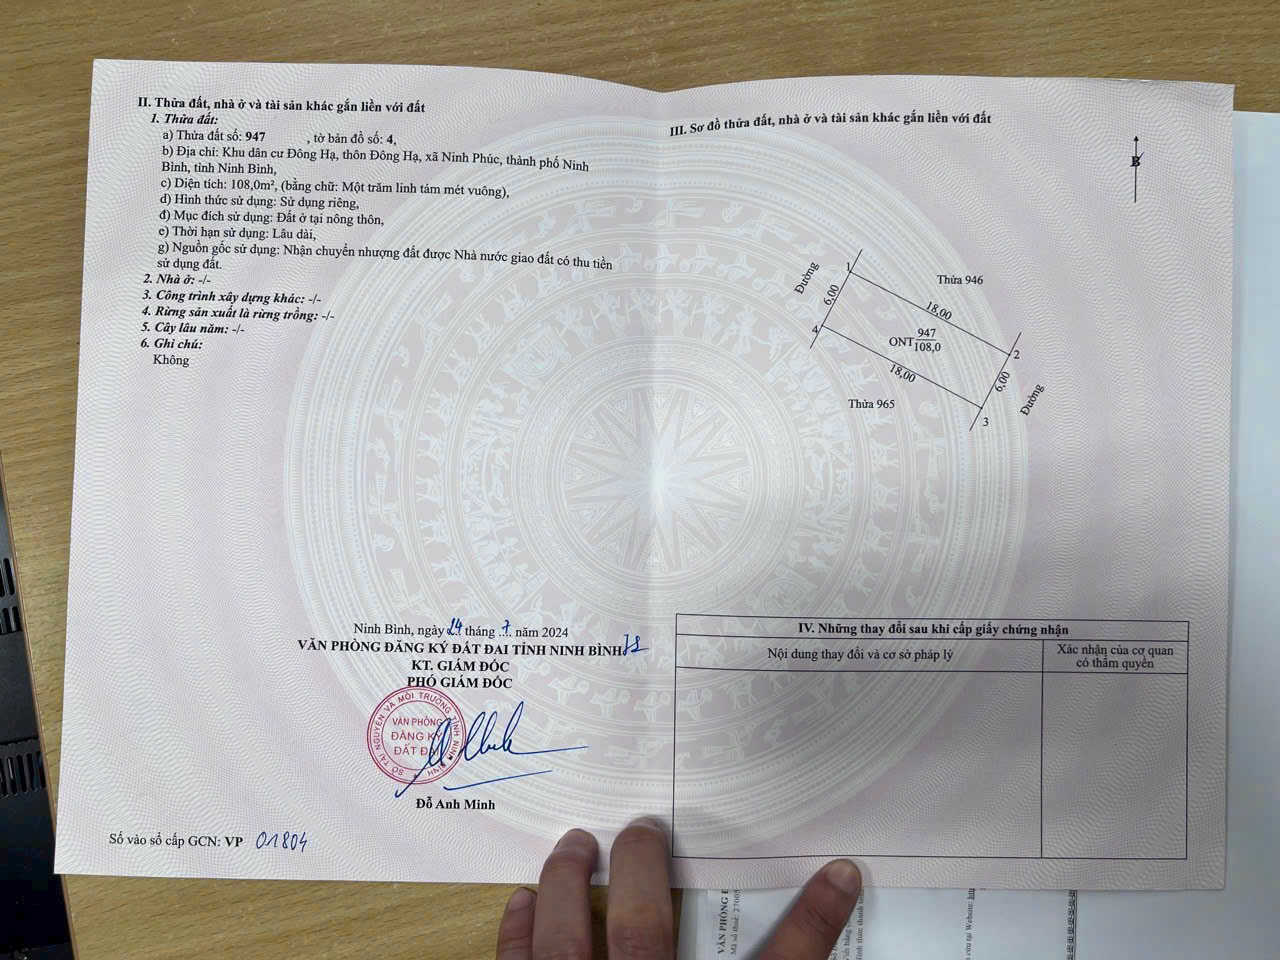 II. Thửa đất, nhà ở và tài sản khác gắn liền với đất
1. Thửa đất:
a) Thửa đất số: 947 , tờ bản đồ số: 4,
b) Địa chỉ: Khu dân cư Đông Hạ, thôn Đông Hạ, xã Ninh Phúc, thành phố Ninh
Bình, tỉnh Ninh Bình,
c) Diện tích: 108,0m², (bằng chữ: Một trăm linh tám mét vuông),
d) Hình thức sử dụng: Sử dụng riêng,
đ) Mục đích sử dụng: Đất ở tại nông thôn,
e) Thời hạn sử dụng: Lâu dài,
g) Nguồn gốc sử dụng: Nhận chuyển nhượng đất được Nhà nước giao đất có thu tiền
sử dụng đất.
2. Nhà ở: -/-
3. Công trình xây dựng khác: -/-
4. Rừng sản xuất là rừng trồng: -/-
5. Cây lâu năm: -/-
6. Ghi chú:
Không
Ninh Bình, ngày 24 tháng .7. năm 2024
VĂN PHÒNG ĐĂNG KÝ ĐẤT ĐAI TỈNH NINH BÌNH
KT. GIÁM ĐỐC
PHÓ GIÁM ĐỐC
SỞ TÀI NGUYÊN VÀ MÔI TRƯỜNG TỈNH NINH BÌNH
VĂN PHÒNG
ĐĂNG KÝ
ĐẤT ĐAI
Đỗ Anh Minh
Số vào sổ cấp GCN: VP 01804
III. Sơ đồ thửa đất, nhà ở và tài sản khác gắn liền với đất
B
Đường
1
6,00
4
Thửa 946
18,00
ONT 947
108,0
18,00
2
6,00
3
Đường
Thửa 965
IV. Những thay đổi sau khi cấp giấy chứng nhận
Nội dung thay đổi và cơ sở pháp lý
Xác nhận của cơ quan
có thẩm quyền
VĂN PHÒNG
Mã số thuế: 27005